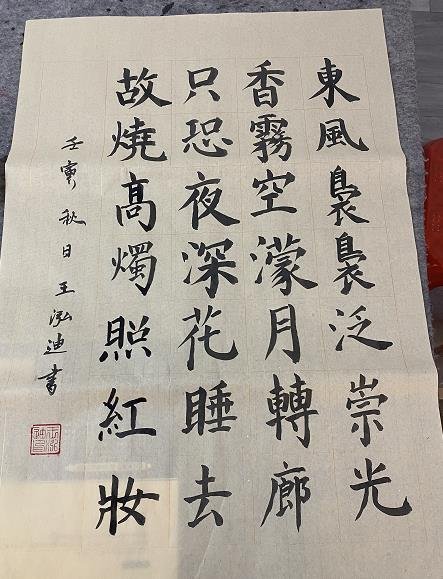 東風裊裊泛崇光
香霧空濛月轉廊
只恐夜深花睡去
故燒高燭照紅妝
壬寅秋日王泓迪書